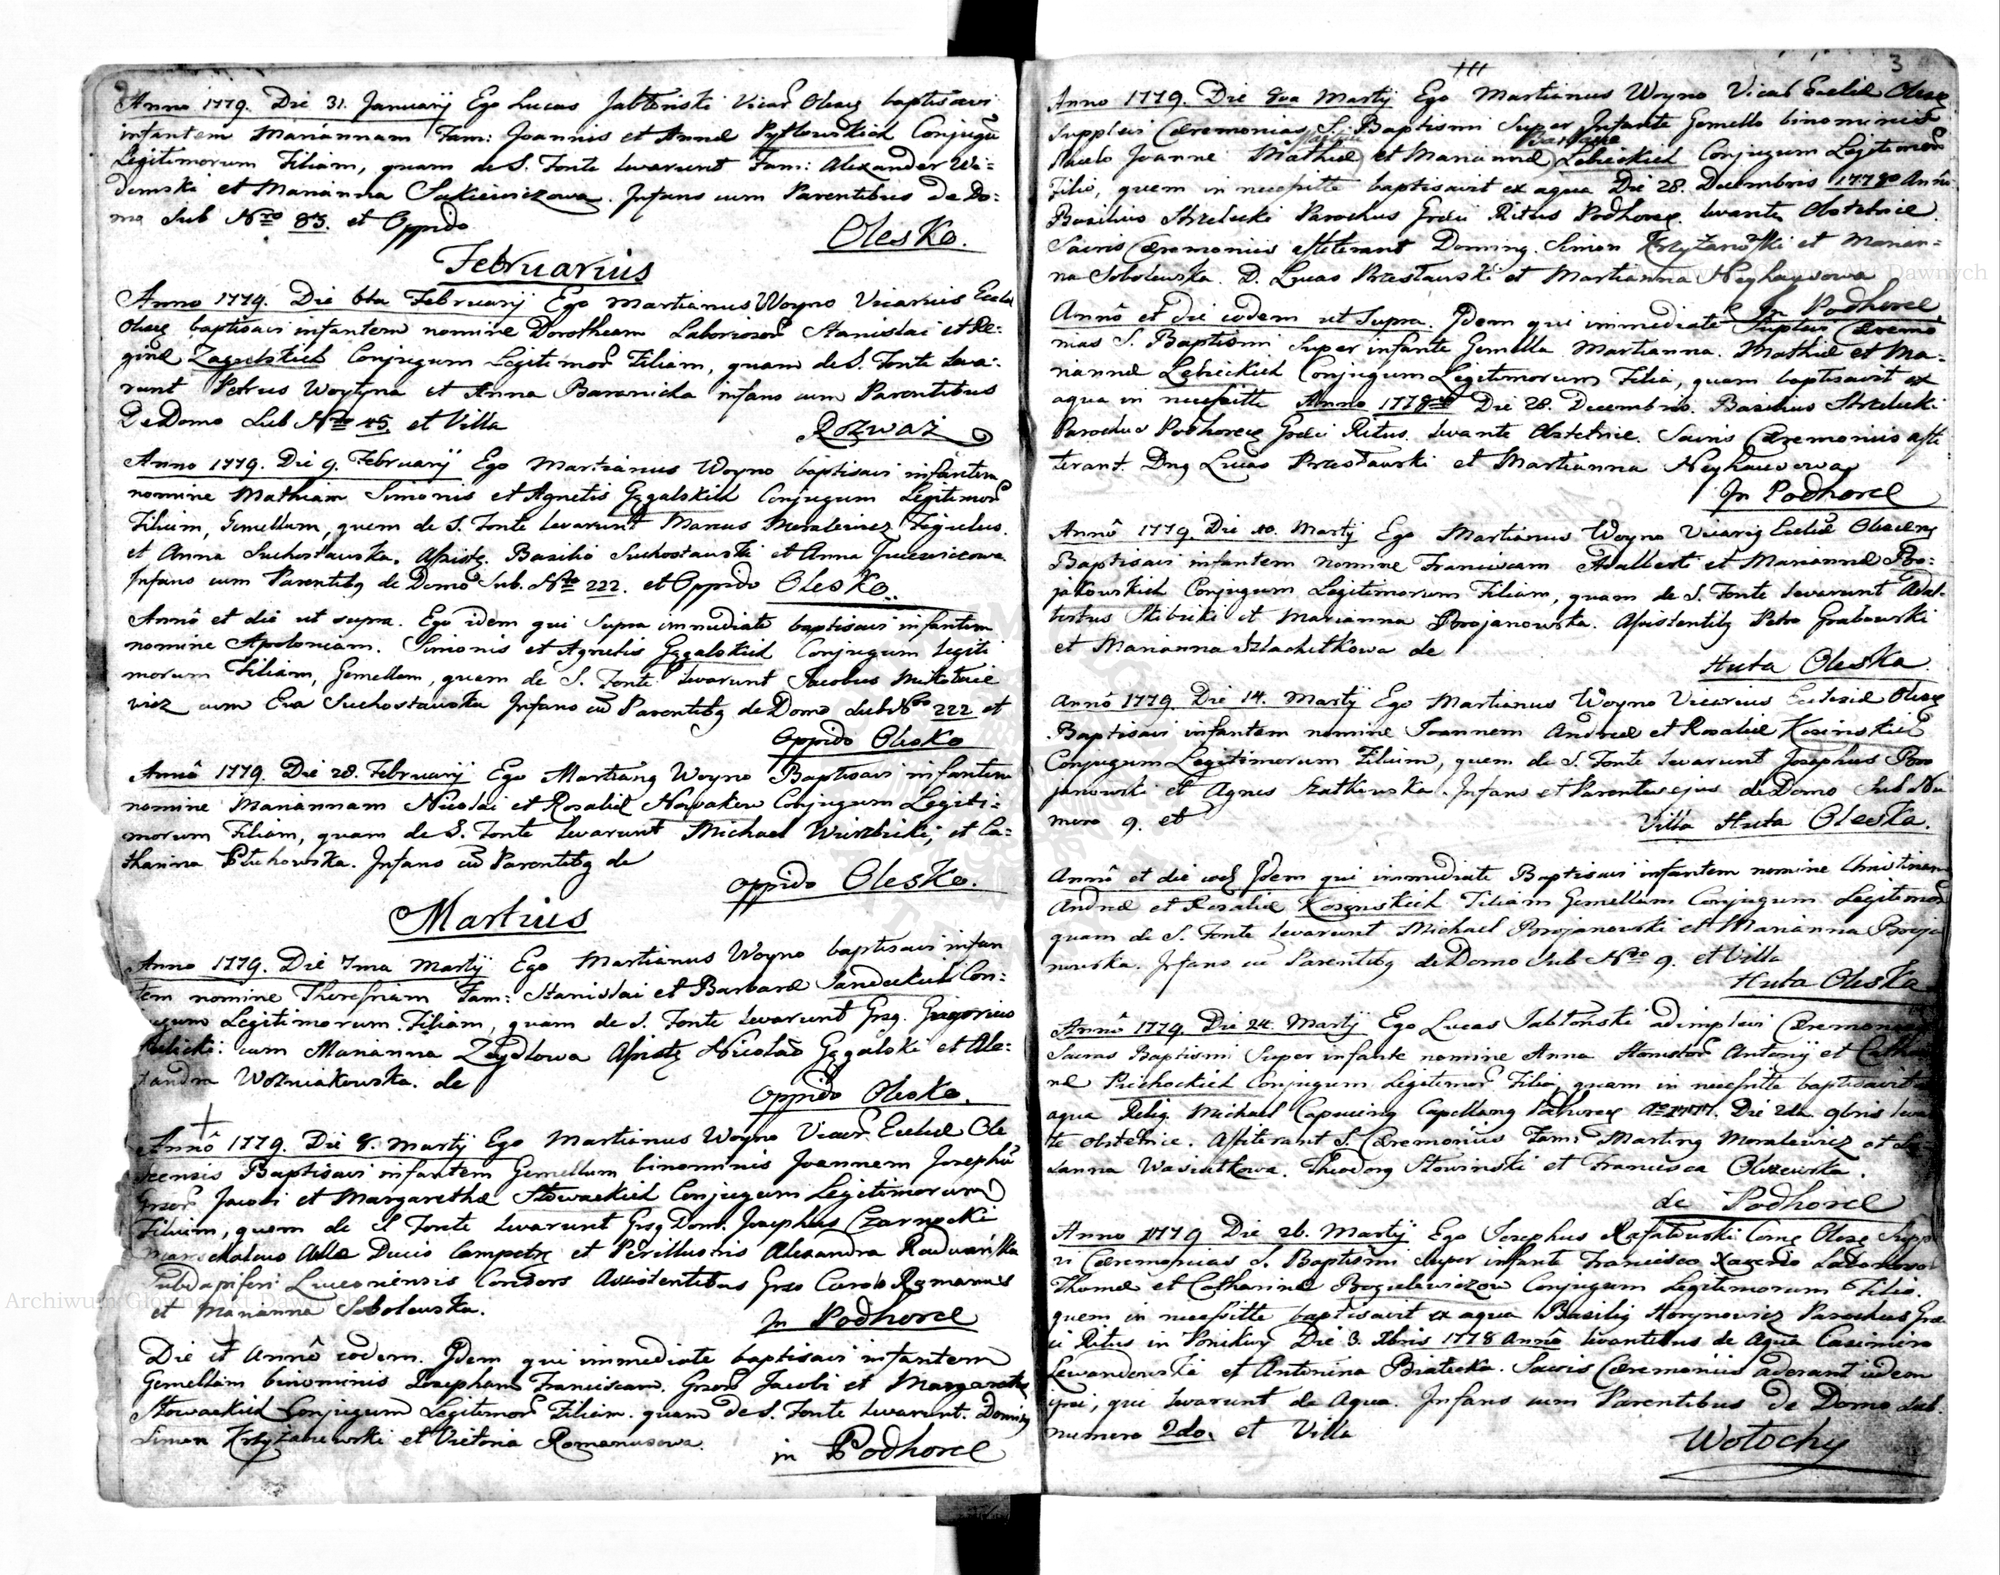 Anno 1779. Die 31. Januarij Ego Lucas Jabłoński Vicar Olesc baptisavi
infantem Mariannam Fam: Joannis et Annæ Pytlowskich Conjugum
Legitimorum Filiam, quam de S. Fonte levarunt Fam: Alexander
et Marianna Sukiewiczowa. Infans cum Parentibus de Do:
mo Sub Nro 83. et Oppido
Olesko.
Februarius
Anno 1779. Die 6ta Februarij Ego Martianus Woyno Vicarius Eccl
Olesc baptisavi infantem nomine Dorotheam Laborioso Stanislai et Re:
ginæ Zagulskich Conjugum Legitimor Filiam, quam de S. Fonte leva:
runt Petrus Woytyna et Anna Baranicha infans cum Parentibus
De Domo Sub Nro 15. et Villa
Rozwaz
Anno 1779. Die 9. Februarij Ego Martianus Woyno baptisavi infantem
nomine Mathiam Simonis et Agnetis Gągalskich Conjugum Legitimor
Filium, Gemellum, quem de S. Fonte levarunt Marcus Moralewicz Figulus
et Anna Suchosławska. Assistę Basilio Suchosławski et Anna
Infans cum Parentibg de Domo Sub. Nro 222. et Oppido Olesko.
Annô et die ut supra. Ego idem qui supra immediate baptisavi infantem
nomine Apoloniam. Simonis et Agnetis Gągalskich Conjugum Legiti
morum Filiam, Gemellam, quam de S. Fonte levarunt Jacobus Mikołaie
wicz cum Eva Suchosławska Infans cu Parentibg de Domo Sub Nro 222 et
Oppido Olesko
Annô 1779. Die 28. Februarij Ego Martiang Woyno Baptisavi infantem
nomine Mariannam Nicolai et Rosaliæ Nowakow Conjugum Legiti:
morum Filiam, quam de S. Fonte levarunt Michael Wierzbicki, et Ca:
tharina Ptuchowska. Infans cu Parentibg de
oppido Olesko.
Martius
Anno 1779. Die 7ma Martij Ego Martianus Woyno baptisavi infan
tem nomine Theresiam Fam: Stanislai et Barbaræ Sandeckich Con:
jugum Legitimorum Filiam, quam de S. Fonte levarunt Grsg. Gregorius
cum Marianna Zeydlowa Assistę Nicolao Gągalski et Ale:
xandra Wozniakowska. de
Oppido Olesko.
Annô 1779. Die 8. Martij Ego Martianus Woyno Vicar. Eccliæ Ole
scensis Baptisavi infantem Gemellum binominis Joannem Josephu
Grsor Jacobi et Margarethæ Słowackich Conjugum Legitimorum
Filium, quem de S Fonte levarunt Grsg Dom. Josephus Czarnecki
Mareschalcus Aulæ Ducis Campestrę et Perillustris Alexandra Radwańska
Subdapiferi Assistentibus Grso Carolo Romanus
et Marianna Sobolewska.
In Podhorce
Die et Annô eodem. Idem qui immediate baptisavi infantem
Gemellam binominis Josepham Franciscam. Grsor Jacobi et Margarethæ
Słowackich Conjugum Legitimor Filiam. quam de S. Fonte levarunt. Dominus
Simon Krzyżanowski et Victoria Romanusowa.
in Podhorce
3
Anno 1779. Die 8va Martij Ego Martianus Woyno Vicar Eccliæ Olesc
Supplevi Cæremonias S. Baptismi Super Infante Gemello binominis
Joanne Mathiæ et Mariannæ Barbaræ Lebeckich Conjugum Legitimor
Filio, quem in necessitte baptisavit ex aqua Die 28. Decembris 1778o Anno
Basilius Strzelecki Parochus Græci Ritus Podhorec. levante Obstetrice.
Sacris Cæremoniis astiterant Doming. Simon Krzyżanowski et Marian:
na Sobolewska. D. Lucas Przesławski et Martianna Neyhausowa
In Podhorce.
Annô et die eodem ut Supra. Idem qui immediate Suplevi Cæremo
nias S. Baptismi Super infante Gemella Martianna. Mathiæ et Ma:
riannæ Lebeckich Conjugum Legitimorum Filia, quam baptisavit ex
aqua in necessitte Anno 1778o Die 28. Decembris. Basilius Strzelecki
Parochus Podhorecg Græci Ritus. levante Obstetrice. Sacris Cæremoniis asti
terant. Dng Lucas Przesławski et Martianna Neyhausowa
In Podhorce
Annô 1779. Die 10. Martij Ego Martianus Woyno Vicarig Eccliæ Olescens
Baptisavi infantem nomine Franciscam Adalberti et Mariannæ Bo:
jakowskich Conjugum Legitimorum Filiam, quam de S. Fonte levarunt Adal-
bertus Skibicki et Marianna Borojanowska. Assistentibg Petro Grabowski
et Marianna Szlachetkowa de
Huta Oleska.
Annô 1779. Die 14. Martij Ego Martianus Woyno Vicarius Ecclesiæ Olesc
Baptisavi infantem nomine Joannem Andreæ et Rosaliæ Kosinskich
Conjugum Legitimorum Filium, quem de S. Fonte levarunt Josephus Boro
janowski et Agnes Szatkowska. Infans et Parentes ejus de Domo Sub Nu
mero 9. et
Villa Huta Oleska.
Annô et die eod Idem qui immediate Baptisavi infantem nomine Christinam
Andreæ et Rosaliæ Kosinskich Filiam Gemellam Conjugum Legitimor
quam de S. Fonte levarunt Michael Borojanowski et Marianna Boroja
nowska. Infans cu Parentibg de Domo Sub Nro 9. et Villa
Huta Oleska
Annô 1779. Die 24. Martij Ego Lucas Jabłoński adimplevi Cæremonias
Sacras Baptismi Super infante nomine Anna Antonij et Cathari
næ Kichockich Conjugum Legitimor Filia, quam in necessitte baptisavit
aqua Relig. Michael Capucing Capellang Podhorecg Ao 1777. Die 24. 9bris levan
te obstetrice. Astiterant S. Cæremoniis Fam: Marting Moralewicz et Su
sanna Wasiutkowa. Theodorg Słowinski et Francisca Olszewska.
de Podhorce
Anno 1779 Die 26. Martij Ego Josephus Rafałowski Comg Olesc Supple
vi Cæremonias S. Baptismi Super infante Francisco Xaverio Laborioso
Thomæ et Catharinæ Bogulewiczow Conjugum Legitimorum Filio.
quem in necessitte baptisavit ex aqua Basilig Horynowicz Parochus Græ
ci Ritus in Ponikwy Die 3. Xbris 1778 Annô levantibus de Aqua Casimiro
Lewandowski et Antonina Białecka. Sacris Cæremoniis aderant iidem
ipsi, qui levarunt de Aqua. Infans cum Parentibus de Domo Sub.
numero 2do. et Villa
Wołochy
Archiwum Główne Akt Dawnych